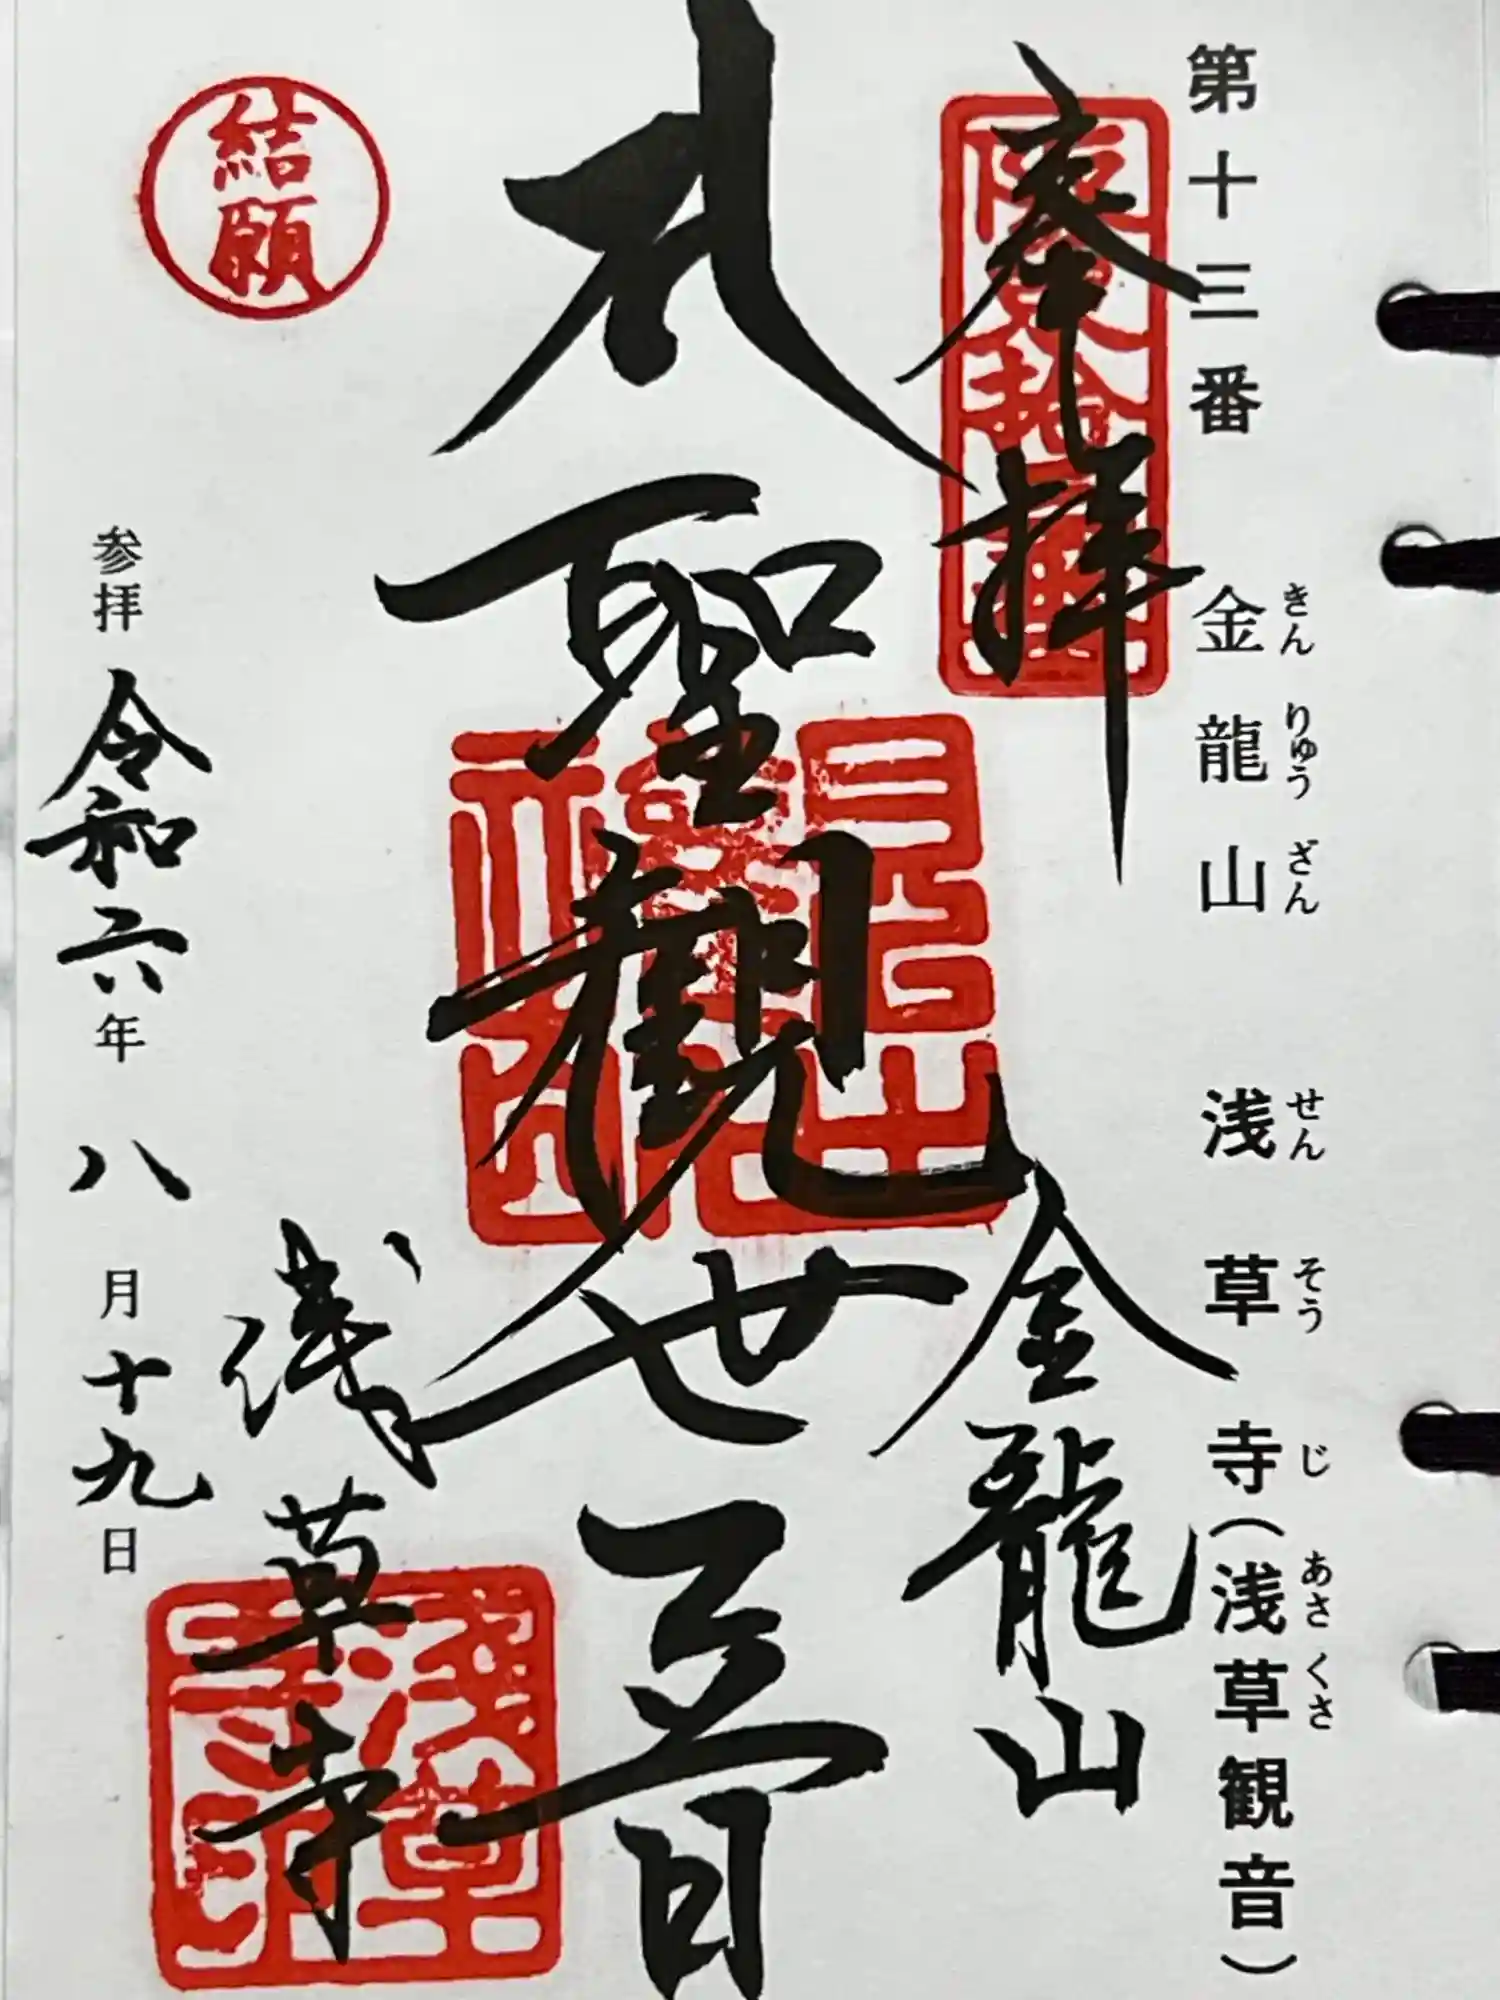 第十三番 金龍山 浅草寺(浅草観音)
きんりゅうざん せんそうじ あさくさ
奉拝
金龍山
聖観世音
浅草寺
結願
参拝 令和六年 八月十九日
浅草寺印